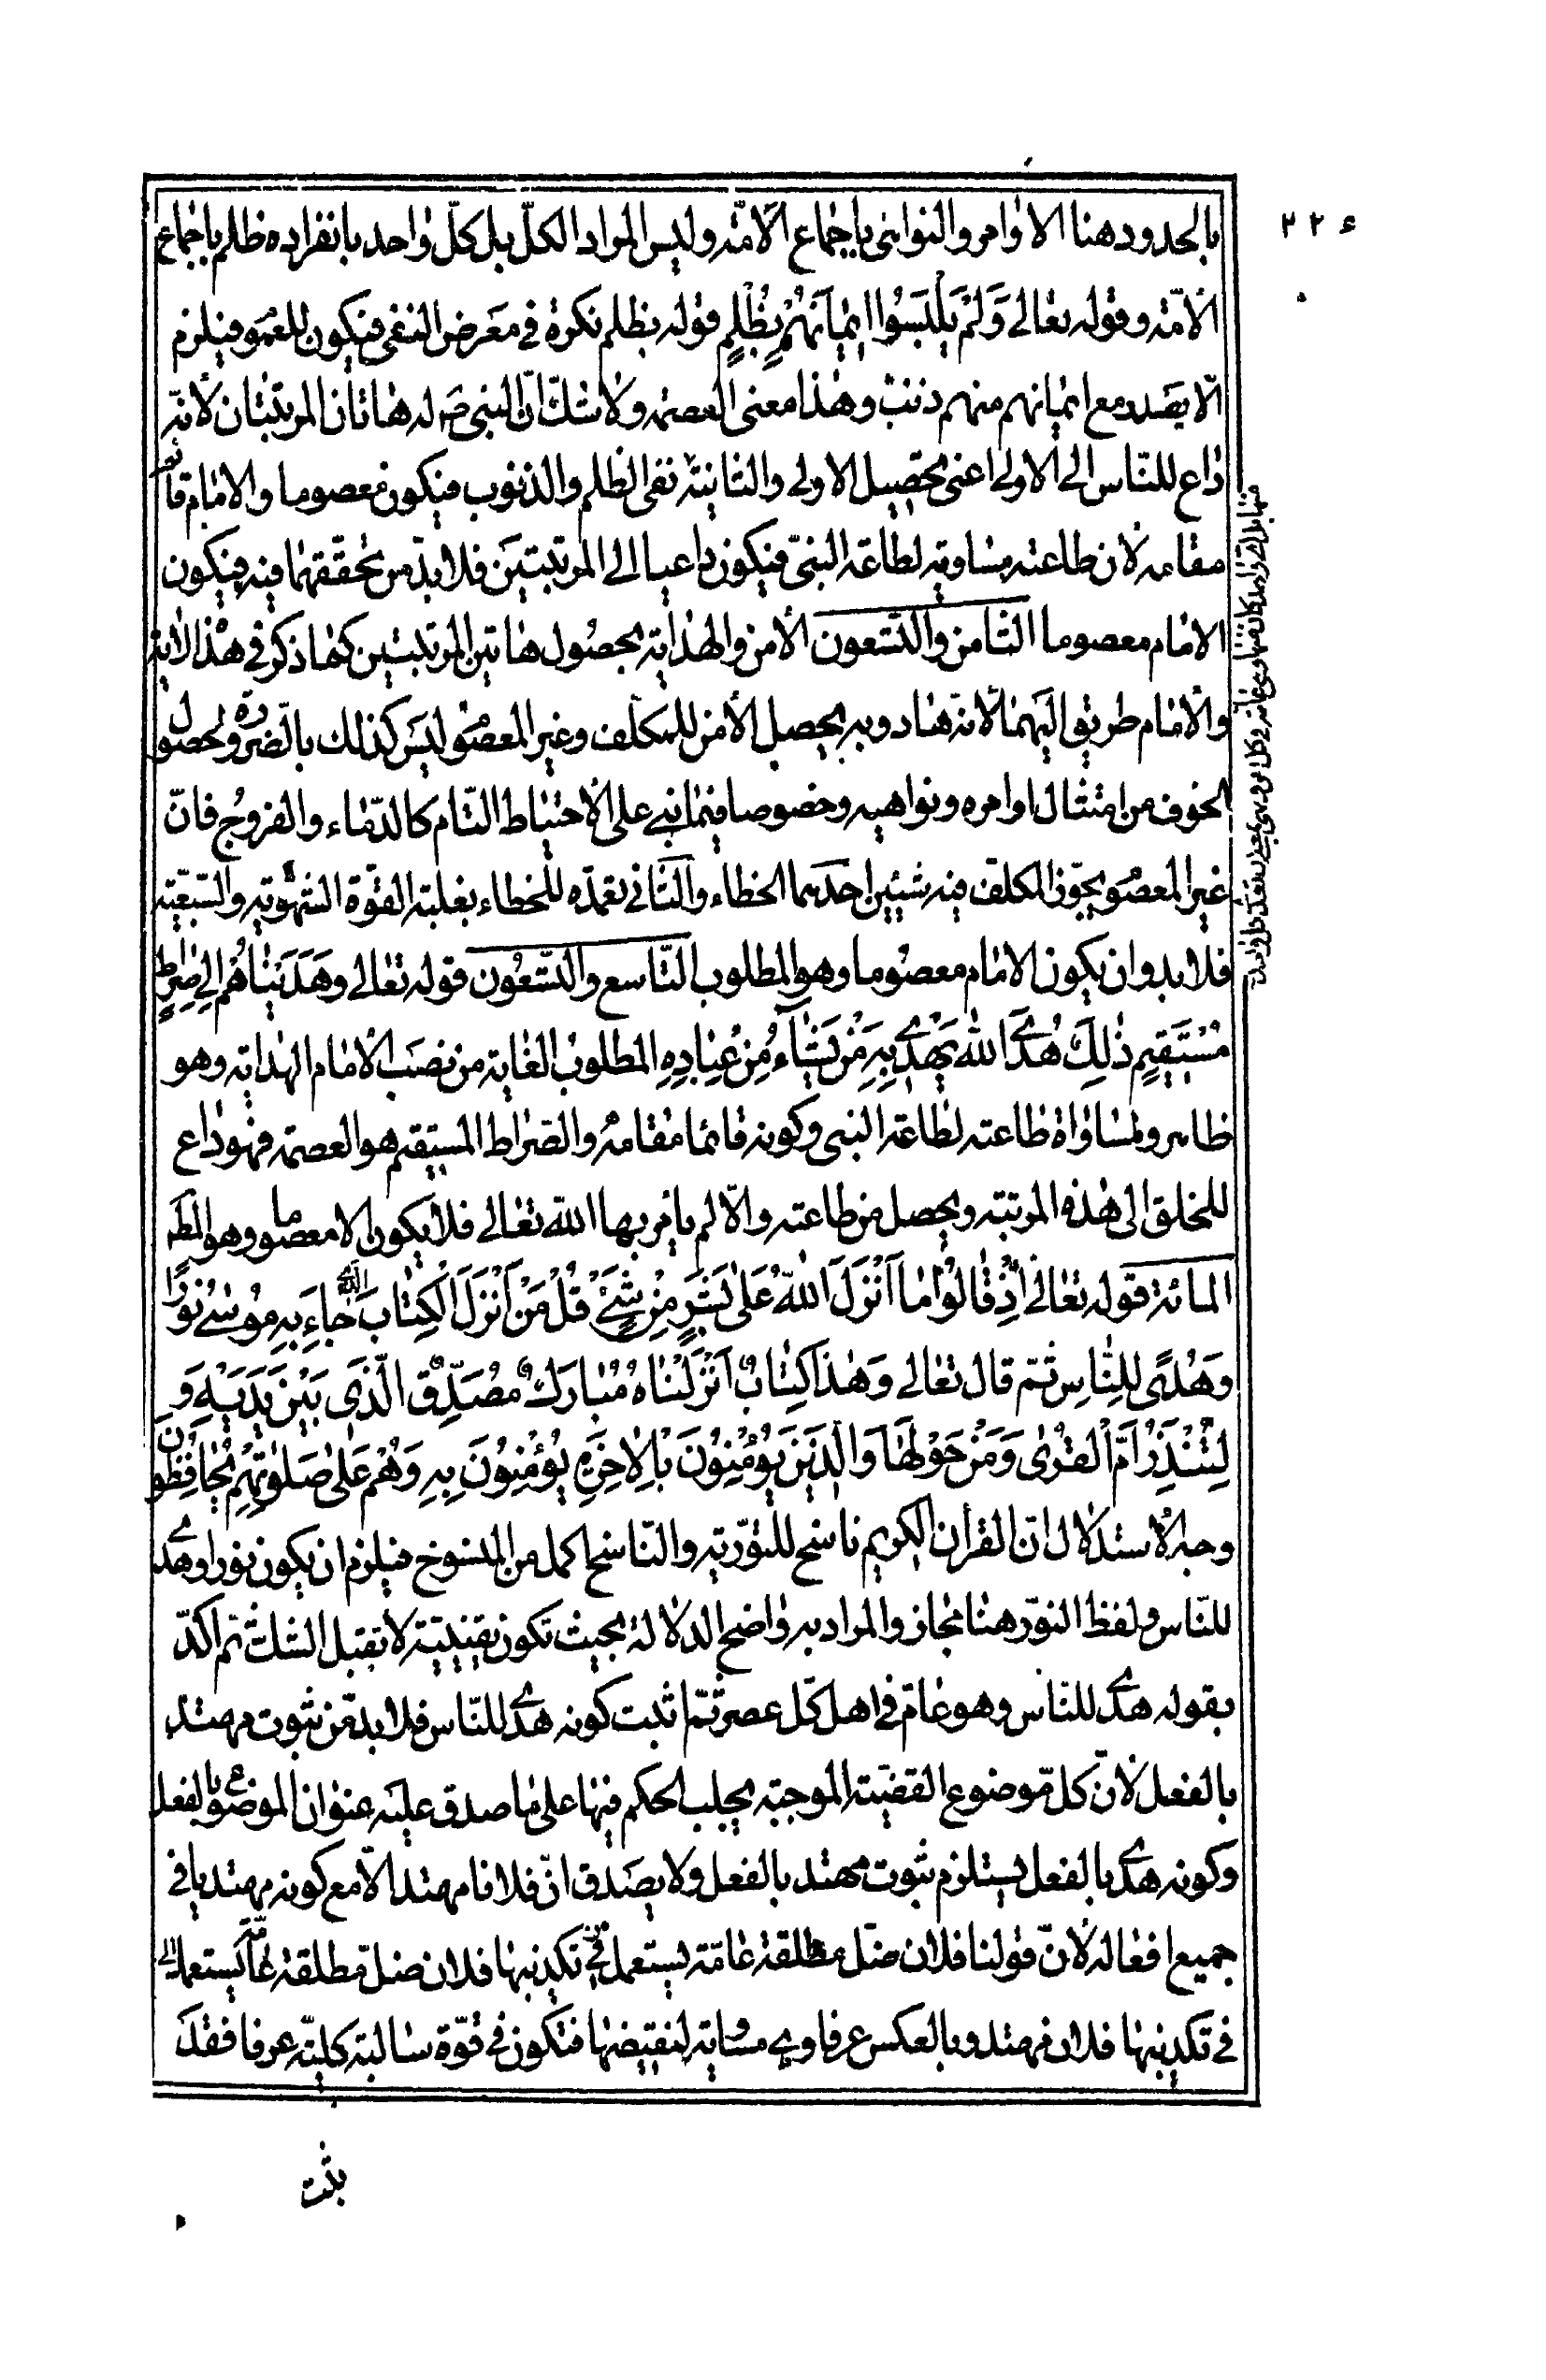 ٢٢٤
بالحدود هنا الاوامر والنواهى باجماع الأمّة وليس المراد الكلّ بل كلّ واحد بانفراده ظلم باجماع
الأمّة وقوله تعالى وَلَمْ يَلْبِسُوا اِيمٰانَهُمْ بِظُلْمٍ قوله بظلم نكرة فى معرض النفى فيكون للعمو فيلزم
الّا يصدر مع ايمانهم منهم ذنب وهذا معنى العصمة ولا شكّ انّ النبى ص له هاتان المرتبتان لأنّه
داع للنّاس الى الأولى اعنى تحصيل الاولى والثانية نفى الظلم والذنوب فيكون معصوما والامام قائم
مقامه لأن طاعته مساوية لطاعة النبىّ فيكون داعيا الى المرتبتين فلا بدّ من تحققهما فيه فيكون
الامام معصوما الثامن والتّسعون الأمن والهداية بحصول هاتين المرتبتين كما ذكر فى هذا الاية
والامام طريق اليهما لأنه هاد وبه يحصل الأمن للمكلّف وغير المعصو ليس كذلك بالضّرورة لحصول
الخوف من امتثال اوامره ونواهيه وخصوصا فيما بنى على الاحتياط التّام كالدّماء والفروج فانّ
غير المعصو يجوّز المكلف فيه شيئين احدهما الخطاء والثانى تعمّده للخطاء بغلبة القوّة الشهويّة والسّبعيّة
فلا بد وان يكون الامام معصوما وهو المطلوب التّاسع والتّسعون قوله تعالى وهَدَيْنٰاهُمْ الى صِرٰاطٍ
مُسْتَقِيمٍ ذٰلِكَ هُدَى اللهِ يَهْدِى بِهِ مَنْ يَشٰآءُ مِنْ عِبٰادِهِ المطلوب الغاية من نصب الامام الهداية وهو
ظاهر ولمساواة طاعته لطاعة النبى وكونه قائما مقامه والصّراط المستقيم هو العصمة فهو داع
للخلق الى هذه المرتبة ويحصل من طاعته والّا لم يامر بها اللّه تعالى فلا يكون الا معصوما وهو المط
المائة قوله تعالى اِذْ قٰالُوا مٰا اَنْزَلَ اللهُ عَلىٰ بَشَرٍ مِنْ شَىْءٍ قُلْ مَنْ اَنْزَلَ الْكِتٰابَ الَّذِى جٰاءَ بِهِ مُوسىٰ نُورًا
وَهُدًى لِلنّٰاسِ ثمّ قال تعالى وَهٰذا كِتٰابٌ اَنْزَلْنٰاهُ مُبٰارَكٌ مُصَدِّقُ الَّذِى بَيْنَ يَدَيْهِ وَ
لِتُنْذِرَ اُمَّ الْقُرىٰ وَمَنْ حَوْلَهٰا وَالَّذِينَ يُؤْمِنُونَ بِالْاٰخِرَةِ يُؤْمِنُونَ بِهِ وَهُمْ عَلىٰ صَلوٰتِهِمْ يُحٰافِظُونَ
وجه الاستدلال انّ القران الكريم ناسخ للتّورية والنّاسخ اكمل من المنسوخ فيلزم ان يكون نورا وهدى
للنّاس ولفظ النّور هنا مجاز والمراد به واضح الدلالة بحيث تكون يقينيّة لا تقبل الشك ثم اكدّ
بقوله هدى للناس وهو عامّ فى اهل كلّ عصر ثمّ اثبت كونه هدى للنّاس فلا بدّ من ثبوت مهتد
بالفعل لأنّ كل موضوع القضيّة الموجبة يجلب الحكم فيها على ما صدق عليه عنوان الموضوع بالفعل
وكونه هدى بالفعل يستلزم ثبوت مهتد بالفعل ولا يصدق انّ فلانا مهتد الّا مع كونه مهتديا فى
جميع افعاله لأنّ قولنا فلان ضلّ مطلقة عامّة يستعمل فى تكذيبها فلان ضلّ مطلقة عامّة يستعمل
فى تكذيبها فلان مهتد وبالعكس عرفا وهى مساوية لنقيضها فتكون فى قوّة سالبة كليّة عرفا فقد